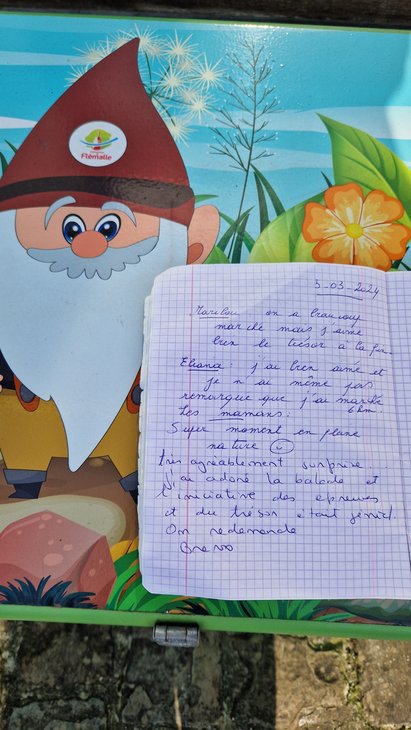 Flémalle
3-03-2024
Marilou on a beaucoup
marché mais j'aime
bien le trésor à la fin.
Eliana: j'ai bien aimé et
Je n'ai même pas
remarqué que j'ai marché
6 km
Les mamans:
Super moment en pleine
nature
très agréablement surprise
j'ai adoré la balade et
l'iniciative des épreuves
et du trésor etait génial.
On redemande
Bravo